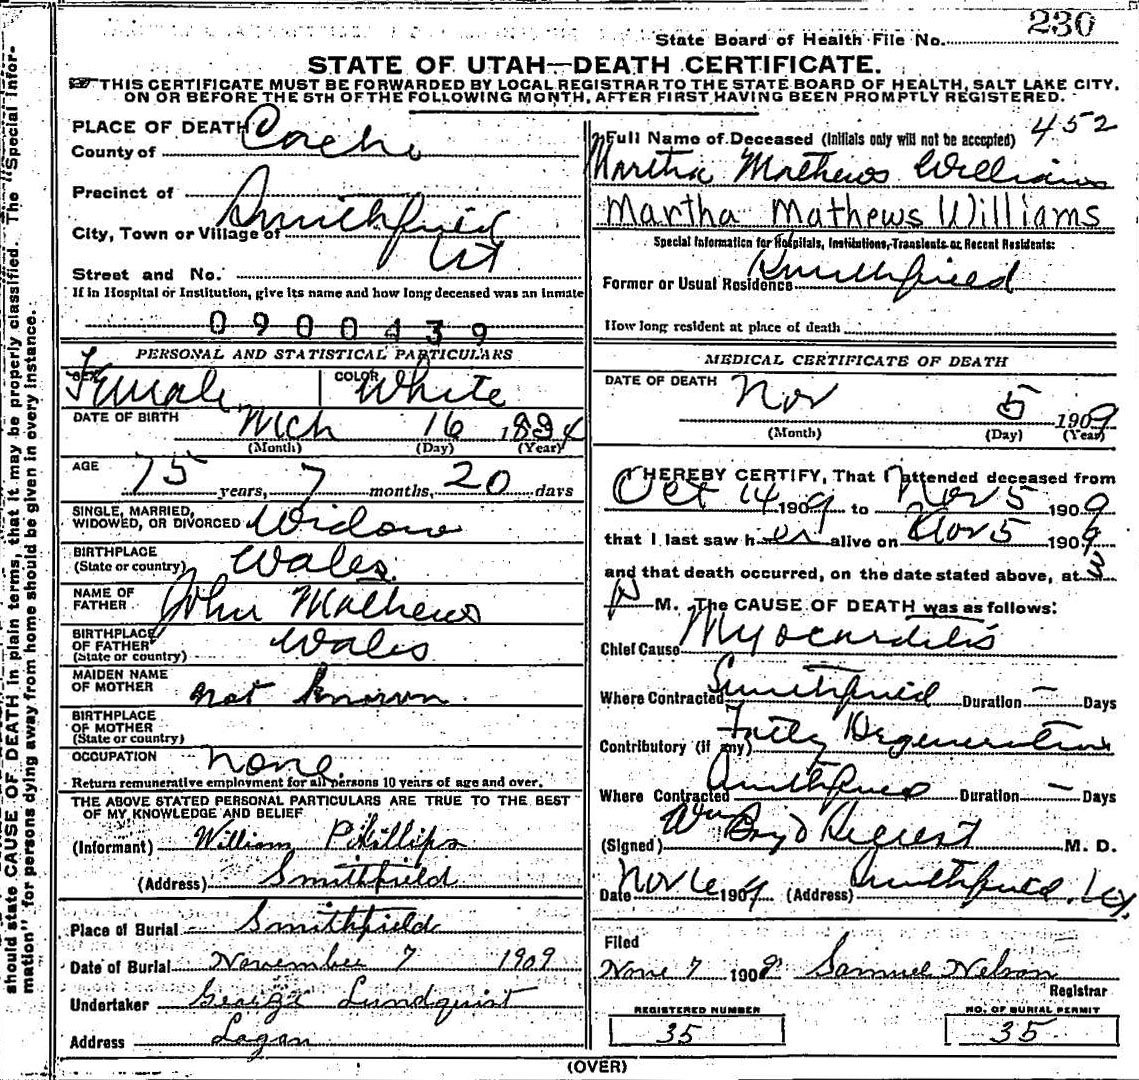 230
State Board of Health File No.
STATE OF UTAH—DEATH CERTIFICATE.
THIS CERTIFICATE MUST BE FORWARDED BY LOCAL REGISTRAR TO THE STATE BOARD OF HEALTH, SALT LAKE CITY,
ON OR BEFORE THE 5TH OF THE FOLLOWING MONTH, AFTER FIRST HAVING BEEN PROMPTLY REGISTERED.
should state CAUSE OF DEATH in plain terms, that it may be properly classified. The "Special Infor-
mation" for persons dying away from home should be given in every instance.
PLACE OF DEATH
County of Cache
Precinct of
City, Town or Village of Smithfield
Ut
Street and No.
If in Hospital or Institution, give its name and how long deceased was an inmate
0900439
PERSONAL AND STATISTICAL PARTICULARS
SEX Female COLOR White
DATE OF BIRTH Mch 16 1834
(Month) (Day) (Year)
AGE
75 years, 7 months, 20 days
SINGLE, MARRIED,
WIDOWED, OR DIVORCED Widow
BIRTHPLACE
(State or country) Wales
NAME OF
FATHER John Mathews
BIRTHPLACE
OF FATHER
(State or country) Wales
MAIDEN NAME
OF MOTHER not known
BIRTHPLACE
OF MOTHER
(State or country)
OCCUPATION none
Return remunerative employment for all persons 10 years of age and over.
THE ABOVE STATED PERSONAL PARTICULARS ARE TRUE TO THE BEST
OF MY KNOWLEDGE AND BELIEF
(Informant) William Phillips
(Address) Smithfield
Place of Burial Smithfield
Date of Burial November 7 1909
Undertaker George Lundquist
Address Logan
452
Full Name of Deceased (Initials only will not be accepted)
Martha Mathews Williams
Martha Mathews Williams
Special Information for Hospitals, Institutions, Transients or Recent Residents:
Former or Usual Residence Smithfield
How long resident at place of death
MEDICAL CERTIFICATE OF DEATH
DATE OF DEATH Nov 5 1909
(Month) (Day) (Year)
I HEREBY CERTIFY, That I attended deceased from
Oct 14 1909 to Nov 5 1909
that I last saw her alive on Nov 5 1909
and that death occurred, on the date stated above, at 3
P M. The CAUSE OF DEATH was as follows:
Chief Cause Myocarditis
Where Contracted Smithfield Duration — Days
Contributory (if any) Fatty Degeneration
Where Contracted Smithfield Duration — Days
(Signed) M. D.
Date Nov 6 1909 (Address) Smithfield
Filed
Nov 7 1909 Samuel Nelson
Registrar
REGISTERED NUMBER
35
NO. OF BURIAL PERMIT
35
(OVER)